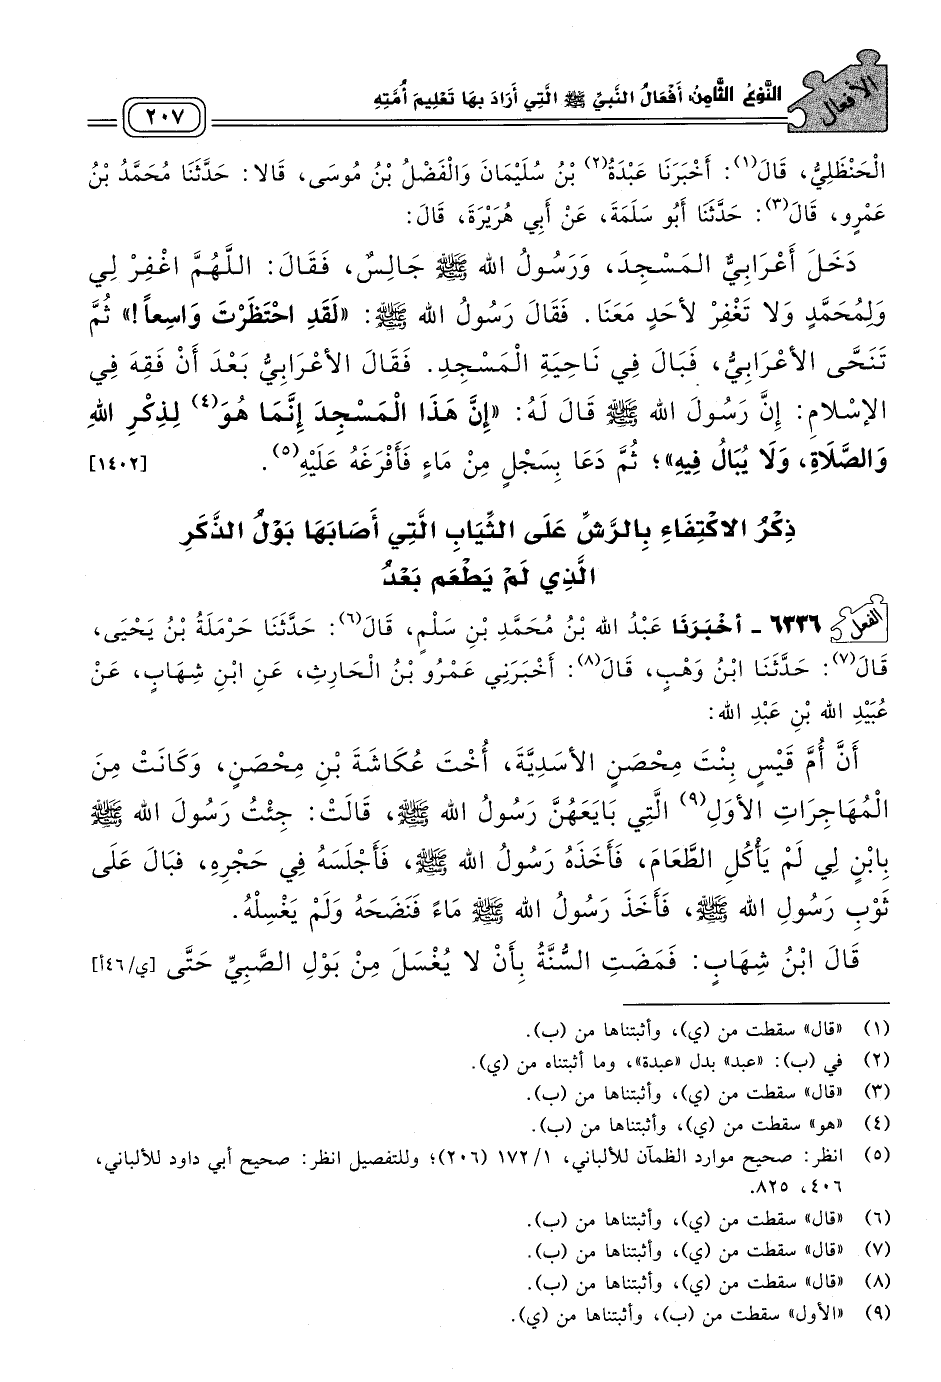 الأفعال
النَّوْعُ الثَّامِنُ: أَفْعَالُ النَّبِيِّ ﷺ الَّتِي أَرَادَ بِهَا تَعْلِيمَ أُمَّتِهِ
٢٠٧
الْحَنْظَلِيُّ، قَالَ(١): أَخْبَرَنَا عَبْدَةُ(٢) بْنُ سُلَيْمَانَ وَالْفَضْلُ بْنُ مُوسَى، قَالا: حَدَّثَنَا مُحَمَّدُ بْنُ
عَمْرٍو، قَالَ(٣): حَدَّثَنَا أَبُو سَلَمَةَ، عَنْ أَبِي هُرَيْرَةَ، قَالَ:
دَخَلَ أَعْرَابِيٌّ الْمَسْجِدَ، وَرَسُولُ الله ﷺ جَالِسٌ، فَقَالَ: اللَّهُمَّ اغْفِرْ لِي
وَلِمُحَمَّدٍ وَلا تَغْفِرْ لأَحَدٍ مَعَنَا. فَقَالَ رَسُولُ الله ﷺ: «لَقَدِ احْتَظَرْتَ وَاسِعاً!» ثُمَّ
تَنَحَّى الأَعْرَابِيُّ، فَبَالَ فِي نَاحِيَةِ الْمَسْجِدِ. فَقَالَ الأَعْرَابِيُّ بَعْدَ أَنْ فَقِهَ فِي
الإِسْلامِ: إِنَّ رَسُولَ الله ﷺ قَالَ لَهُ: «إِنَّ هَذَا الْمَسْجِدَ إِنَّمَا هُوَ(٤) لِذِكْرِ اللهِ
وَالصَّلَاةِ، وَلَا يُبَالُ فِيهِ»؛ ثُمَّ دَعَا بِسَجْلٍ مِنْ مَاءٍ فَأَفْرَغَهُ عَلَيْهِ(٥). [١٤٠٢]
ذِكْرُ الاكْتِفَاءِ بِالرَّشِّ عَلَى الثِّيَابِ الَّتِي أَصَابَهَا بَوْلُ الذَّكَرِ
الَّذِي لَمْ يَطْعَم بَعْدُ
الفعل ٦٣٣٦ - أَخْبَرَنَا عَبْدُ الله بْنُ مُحَمَّدِ بْنِ سَلْمٍ، قَالَ(٦): حَدَّثَنَا حَرْمَلَةُ بْنُ يَحْيَى،
قَالَ(٧): حَدَّثَنَا ابْنُ وَهْبٍ، قَالَ(٨): أَخْبَرَنِي عَمْرُو بْنُ الْحَارِثِ، عَنِ ابْنِ شِهَابٍ، عَنْ
عُبَيْدِ الله بْنِ عَبْدِ الله:
أَنَّ أُمَّ قَيْسٍ بِنْتَ مِحْصَنٍ الأَسَدِيَّةَ، أُخْتَ عُكَاشَةَ بْنِ مِحْصَنٍ، وَكَانَتْ مِنَ
الْمُهَاجِرَاتِ الأُوَلِ(٩) الَّتِي بَايَعَهُنَّ رَسُولُ الله ﷺ، قَالَتْ: جِئْتُ رَسُولَ الله ﷺ
بِابْنٍ لِي لَمْ يَأْكُلِ الطَّعَامَ، فَأَخَذَهُ رَسُولُ الله ﷺ، فَأَجْلَسَهُ فِي حَجْرِهِ، فَبَالَ عَلَى
ثَوْبِ رَسُولِ الله ﷺ، فَأَخَذَ رَسُولُ الله ﷺ مَاءً فَنَضَحَهُ وَلَمْ يَغْسِلْهُ.
قَالَ ابْنُ شِهَابٍ: فَمَضَتِ السُّنَّةُ بِأَنْ لا يُغْسَلَ مِنْ بَوْلِ الصَّبِيِّ حَتَّى [ي/٤٦أ]
(١) «قال» سقطت من (ي)، وأثبتناها من (ب).
(٢) في (ب): «عبد» بدل «عبدة»، وما أثبتناه من (ي).
(٣) «قال» سقطت من (ي)، وأثبتناها من (ب).
(٤) «هو» سقطت من (ي)، وأثبتناها من (ب).
(٥) انظر: صحيح موارد الظمآن للألباني، ١/ ١٧٢ (٢٠٦)؛ وللتفصيل انظر: صحيح أبي داود للألباني،
٤٠٦، ٨٢٥.
(٦) «قال» سقطت من (ي)، وأثبتناها من (ب).
(٧) «قال» سقطت من (ي)، وأثبتناها من (ب).
(٨) «قال» سقطت من (ي)، وأثبتناها من (ب).
(٩) «الأول» سقطت من (ب)، وأثبتناها من (ي).